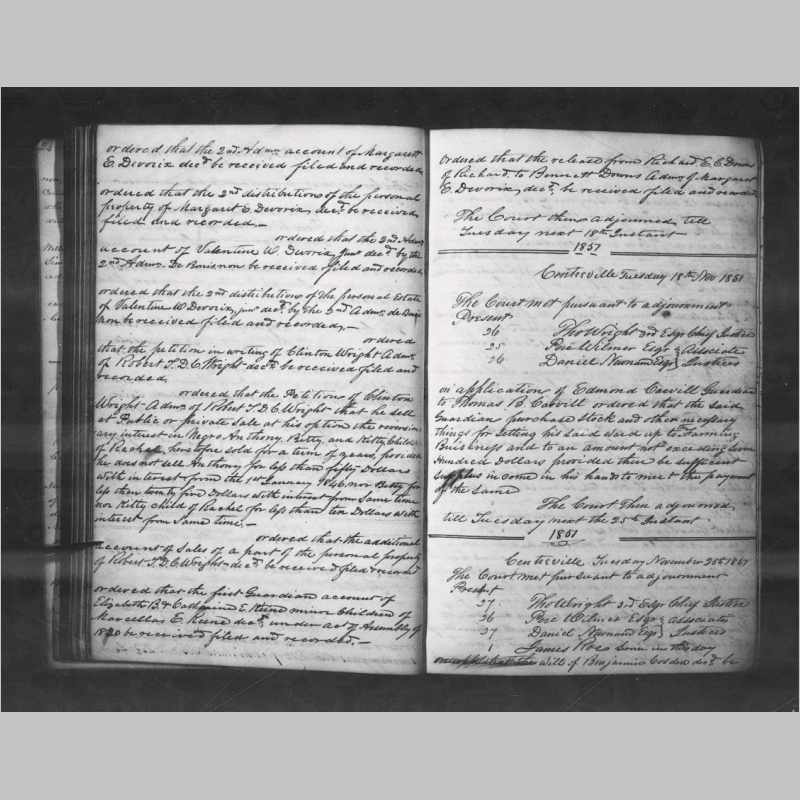 ordered that the 2nd Adms account of Margarett
E. Devorix decd be received filed and recorded,
ordered that the 2nd distributions of the personal
property of Margaret E. Devorix, decd be received
filed and recorded. —
ordered that the 2nd Adms
account of Valentine W. Devorix, Junr decd by the
2nd Adms. De Bonis non be received filed and recorded,
ordered that the 2nd distributions of the personal Estate
of Valentine W. Devorix, Junr decd by the 2nd Adms, de Bonis
non be received filed and recorded, —
ordered
that the petition in writing of Clinton Wright Adms
of Robert T. D. C. Wright decd be received filed and
recorded,
ordered that the Petitions of Clinton
Wright Adms of Robert T. D. C. Wright that he sell
at Public or private Sale at his option the reversion
ary interest in Negro Anthony, Betty, and Kitty Childn
of Rachel, heretofore sold for a term of years, provided
he does not sell Anthony for less than fifty Dollars
with interest from the 1st January 1846, nor Betty for
less than twenty five Dollars with interest from Same time
nor Kitty Child of Rachel for less than ten Dollars with
interest from Same time. —
ordered that the additional
account of Sales of a part of the personal property
of Robert T. D. C. Wright decd be received filed & record
ordered that the first Guardian account of
Elizabeth B. & Catharine E. Keene minor Children of
Marcellas E. Keene decd, under act of Assembly of
1820 be received filed and recorded, —
Ordered that the release from Richard E. E. Downs
of Richard, to Bennett Downs Adms of Margaret
E. Devorix, decd, be received filed and recorded
The Court then adjourned till
Tuesday next 18th Instant
1851
Centreville Tuesday 18th Nov 1851
The Court met pursuant to adjournment
Present
26 Tho Wright 3rd Esqr Chief Justice
25 Pere Wilmer Esqr } Associate
26 Daniel Newnam Esqr } Justices
on application of Edmond Carvill Guardian
to Thomas B. Carvill ordered that the said
Guardian purchase Stock and other necessary
things for Setting his Said Ward up to Farming
Buisiness and to an amount not exceeding Seven
Hundred Dollars provided there be sufficient
Surplus income in his hands to meet the payment
of the Same
The Court Then adjourned,
till Tuesday next the 25th Instant
1851
Centreville Tuesday November 25th 1851
The Court met pursuant to adjournment
Present
27. Tho Wright 3rd Esqr Chief Justice
26 Pere Wilmer Esqr } Associate
27 Daniel Newnam Esqr } Justices
1 James Roes Sevin in this day
on application the Will of Benjamin Cosden decd be